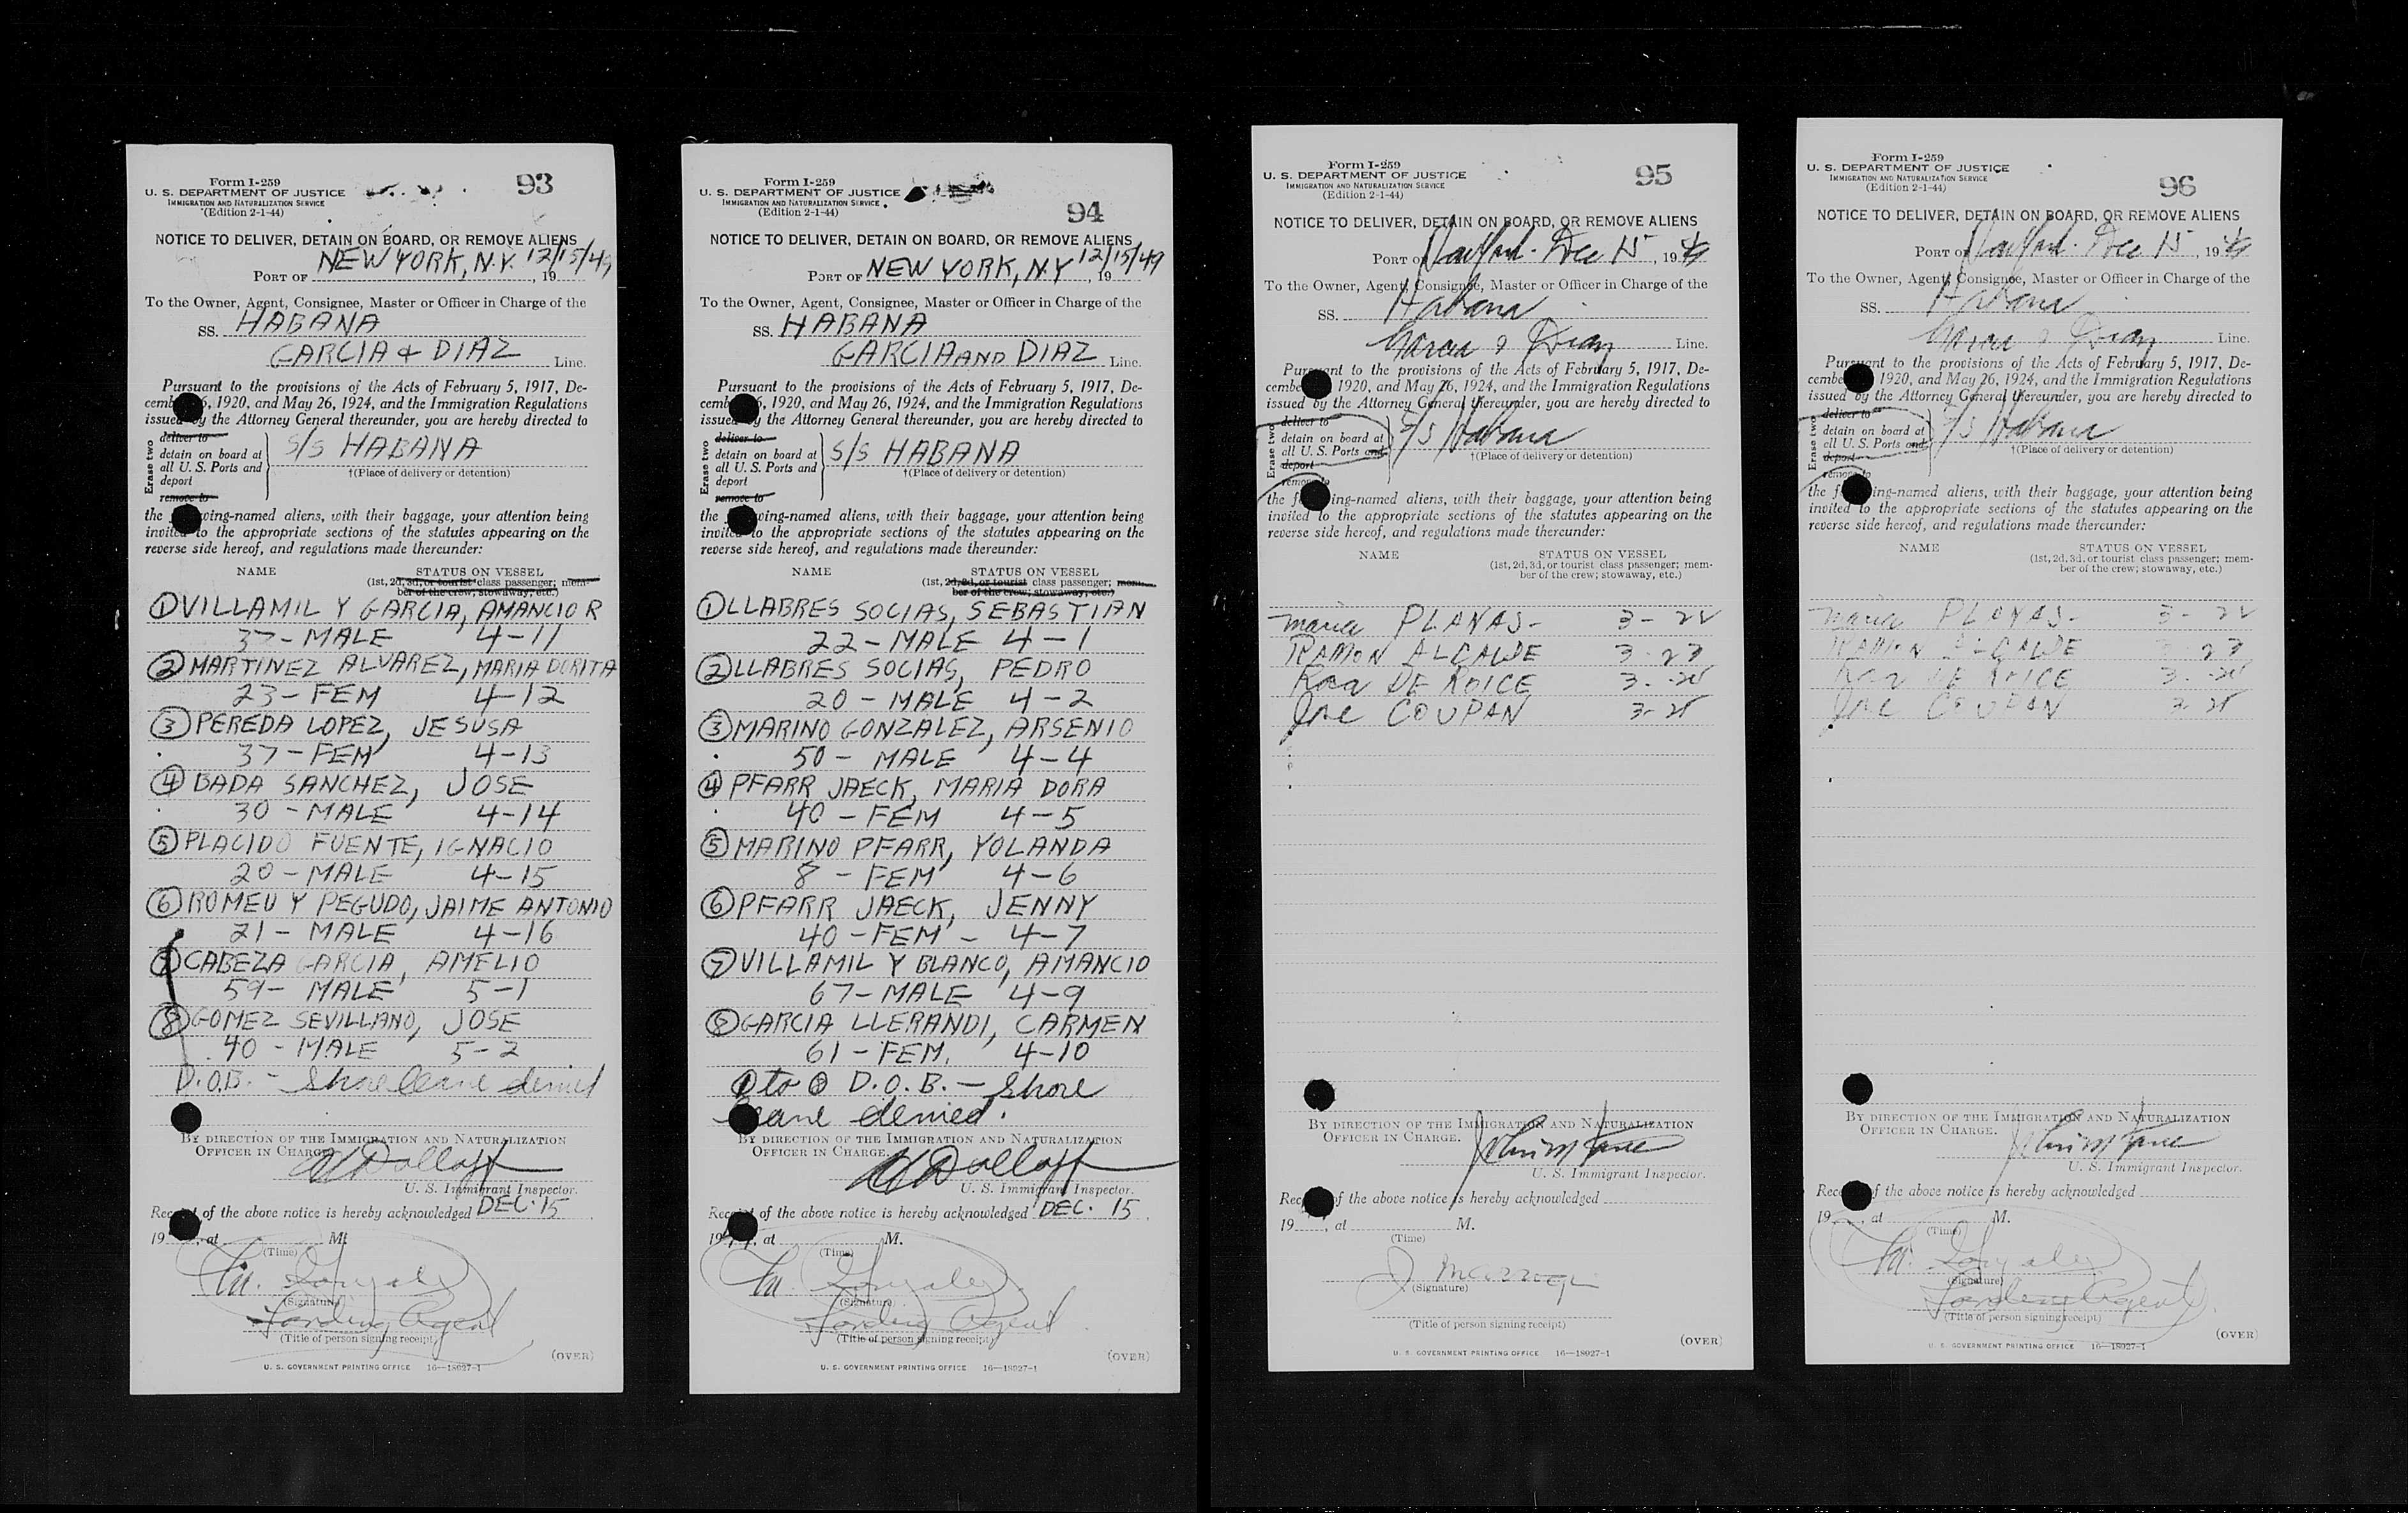 Form I-259
U. S. DEPARTMENT OF JUSTICE
IMMIGRATION AND NATURALIZATION SERVICE
(Edition 2-1-44)
93
NOTICE TO DELIVER, DETAIN ON BOARD, OR REMOVE ALIENS
PORT OF NEW YORK, N.Y. 12/15/49, 19
To the Owner, Agent, Consignee, Master or Officer in Charge of the
SS. HABANA
GARCIA & DIAZ Line.
Pursuant to the provisions of the Acts of February 5, 1917, De-
cemb 5, 1920, and May 26, 1924, and the Immigration Regulations
issued by the Attorney General thereunder, you are hereby directed to
Erase two
deliver to
detain on board at
all U. S. Ports and
deport
remove to
S/S HABANA
†(Place of delivery or detention)
the wing-named aliens, with their baggage, your attention being
invited to the appropriate sections of the statutes appearing on the
reverse side hereof, and regulations made thereunder:
NAME STATUS ON VESSEL
(1st, 2d, 3d, or tourist class passenger; mem-
ber of the crew; stowaway, etc.)
① VILLAMIL Y GARCIA, AMANCIO R
37 - MALE 4-11
② MARTINEZ ALVAREZ, MARIA DORITA
23 - FEM 4-12
③ PEREDA LOPEZ, JESUSA
37 - FEM 4-13
④ BADA SANCHEZ, JOSE
30 - MALE 4-14
⑤ PLACIDO FUENTE, IGNACIO
20 - MALE 4-15
⑥ ROMEU Y PEGUDO, JAIME ANTONIO
21 - MALE 4-16
⑦ CABEZA GARCIA, AMELIO
59 - MALE 5-1
⑧ GOMEZ SEVILLANO, JOSE
40 - MALE 5-2
D.O.B. - Shore leave denied
BY DIRECTION OF THE IMMIGRATION AND NATURALIZATION
OFFICER IN CHARGE.
U. S. Immigrant Inspector.
Rec of the above notice is hereby acknowledged DEC. 15
19 , at M.
(Time)
Gonzalez
(Signature)
Landing Agent
(Title of person signing receipt)
(OVER)
U. S. GOVERNMENT PRINTING OFFICE 16—18027-1
Form I-259
U. S. DEPARTMENT OF JUSTICE
IMMIGRATION AND NATURALIZATION SERVICE
(Edition 2-1-44)
94
NOTICE TO DELIVER, DETAIN ON BOARD, OR REMOVE ALIENS
PORT OF NEW YORK, N.Y 12/15/49, 19
To the Owner, Agent, Consignee, Master or Officer in Charge of the
SS. HABANA
GARCIA AND DIAZ Line.
Pursuant to the provisions of the Acts of February 5, 1917, De-
cemb 5, 1920, and May 26, 1924, and the Immigration Regulations
issued by the Attorney General thereunder, you are hereby directed to
Erase two
deliver to
detain on board at
all U. S. Ports and
deport
remove to
S/S HABANA
†(Place of delivery or detention)
the wing-named aliens, with their baggage, your attention being
invited to the appropriate sections of the statutes appearing on the
reverse side hereof, and regulations made thereunder:
NAME STATUS ON VESSEL
(1st, 2d, 3d, or tourist class passenger; mem-
ber of the crew; stowaway, etc.)
① LLABRES SOCIAS, SEBASTIAN
22 - MALE 4-1
② LLABRES SOCIAS, PEDRO
20 - MALE 4-2
③ MARINO GONZALEZ, ARSENIO
50 - MALE 4-4
④ PFARR JAECK, MARIA DORA
40 - FEM 4-5
⑤ MARINO PFARR, YOLANDA
8 - FEM 4-6
⑥ PFARR JAECK, JENNY
40 - FEM - 4-7
⑦ VILLAMIL Y BLANCO, AMANCIO
67 - MALE 4-9
⑧ GARCIA LLERANDI, CARMEN
61 - FEM. 4-10
① to ⑧ D.O.B. - Shore
leave denied.
BY DIRECTION OF THE IMMIGRATION AND NATURALIZATION
OFFICER IN CHARGE.
U. S. Immigrant Inspector.
Rec of the above notice is hereby acknowledged DEC. 15
19 , at M.
(Time)
Gonzalez
(Signature)
Landing Agent
(Title of person signing receipt)
(OVER)
U. S. GOVERNMENT PRINTING OFFICE 16—18027-1
Form I-259
U. S. DEPARTMENT OF JUSTICE
IMMIGRATION AND NATURALIZATION SERVICE
(Edition 2-1-44)
95
NOTICE TO DELIVER, DETAIN ON BOARD, OR REMOVE ALIENS
PORT OF Dec 15, 1949
To the Owner, Agent, Consignee, Master or Officer in Charge of the
SS. Habana
Garcia & Diaz Line.
Pursuant to the provisions of the Acts of February 5, 1917, De-
cembe 1920, and May 26, 1924, and the Immigration Regulations
issued by the Attorney General thereunder, you are hereby directed to
Erase two
deliver to
detain on board at
all U. S. Ports and
deport
remove to
S/S Habana
†(Place of delivery or detention)
the f ing-named aliens, with their baggage, your attention being
invited to the appropriate sections of the statutes appearing on the
reverse side hereof, and regulations made thereunder:
NAME STATUS ON VESSEL
(1st, 2d, 3d, or tourist class passenger; mem-
ber of the crew; stowaway, etc.)
Maria PLANAS - 3-22
RAMON ALCALDE 3-23
Rosa DE ROICE 3-
Jose COUPAN 3-25
BY DIRECTION OF THE IMMIGRATION AND NATURALIZATION
OFFICER IN CHARGE.
U. S. Immigrant Inspector.
Rec f the above notice is hereby acknowledged
19 , at M.
(Time)
(Signature)
(Title of person signing receipt)
(OVER)
U. S. GOVERNMENT PRINTING OFFICE 16—18027-1
Form I-259
U. S. DEPARTMENT OF JUSTICE
IMMIGRATION AND NATURALIZATION SERVICE
(Edition 2-1-44)
96
NOTICE TO DELIVER, DETAIN ON BOARD, OR REMOVE ALIENS
PORT OF Dec 15, 1949
To the Owner, Agent, Consignee, Master or Officer in Charge of the
SS. Habana
Garcia & Diaz Line.
Pursuant to the provisions of the Acts of February 5, 1917, De-
cembe 1920, and May 26, 1924, and the Immigration Regulations
issued by the Attorney General thereunder, you are hereby directed to
Erase two
deliver to
detain on board at
all U. S. Ports and
deport
remove to
S/S Habana
†(Place of delivery or detention)
the f ing-named aliens, with their baggage, your attention being
invited to the appropriate sections of the statutes appearing on the
reverse side hereof, and regulations made thereunder:
NAME STATUS ON VESSEL
(1st, 2d, 3d, or tourist class passenger; mem-
ber of the crew; stowaway, etc.)
Maria PLANAS - 3-22
RAMON ALCALDE 3-23
Rosa DE ROICE 3-
Jose COUPAN 3-25
BY DIRECTION OF THE IMMIGRATION AND NATURALIZATION
OFFICER IN CHARGE.
U. S. Immigrant Inspector.
Rec f the above notice is hereby acknowledged
19 , at M.
(Time)
Gonzalez
(Signature)
Landing Agent
(Title of person signing receipt)
(OVER)
U. S. GOVERNMENT PRINTING OFFICE 16—18027-1